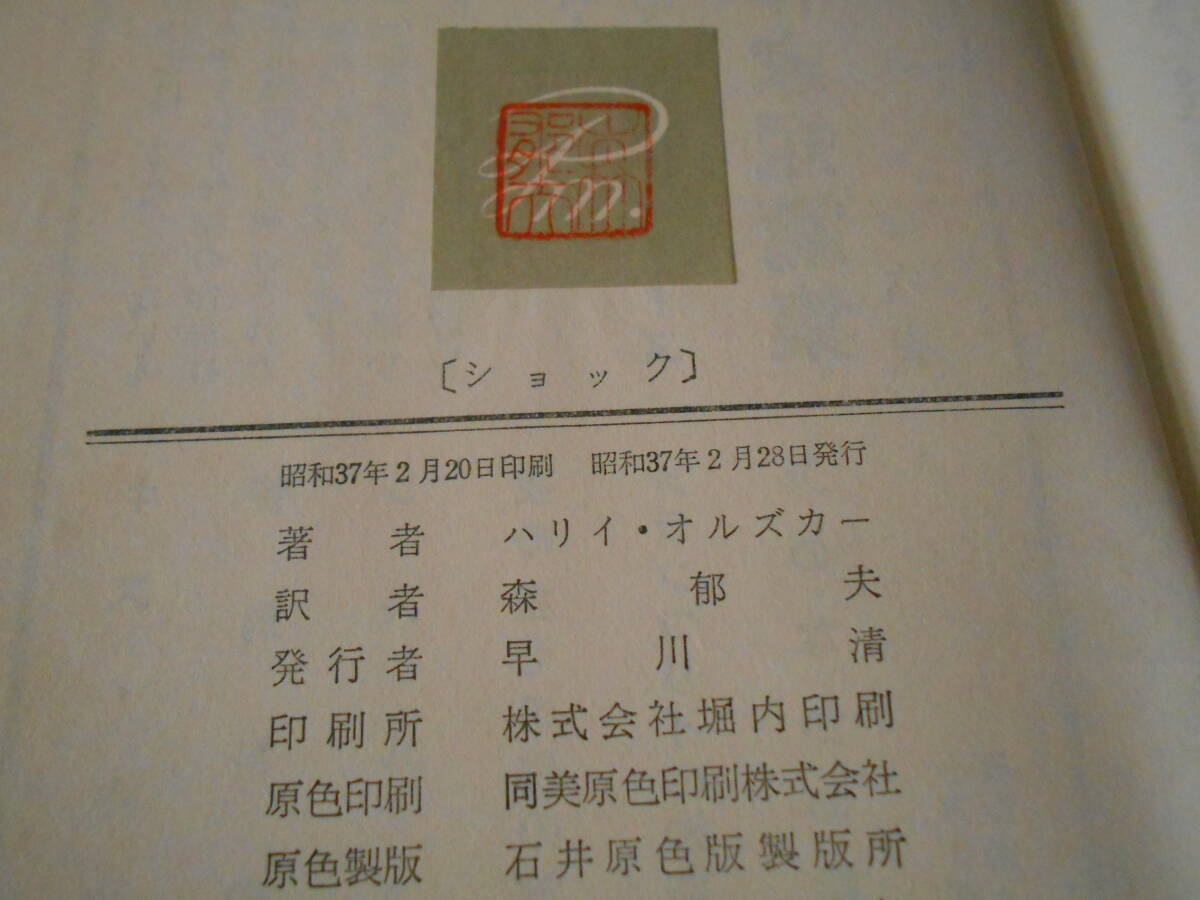 〔ショック〕
昭和37年2月20日印刷 昭和37年2月28日発行
著者 ハリイ・オルズカー
訳者 森郁夫
発行者 早川清
印刷所 株式会社堀内印刷
原色印刷 同美原色印刷株式会社
原色製版 石井原色版製版所